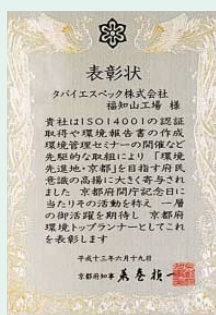 表彰状
タバイエスペック株式会社
福知山工場 様
貴社はISO14001の認証
取得や環境報告書の作成
環境管理セミナーの開催など
先駆的な取組により「環境
先進地・京都」を目指す府民
意識の高揚に大きく寄与され
ました 京都府開庁記念日に
当たりその活動を称え 一層
の御活躍を期待し 京都府環
境トップランナーとしてこれ
を表彰します
平成十三年六月十九日
京都府知事 荒巻禎一